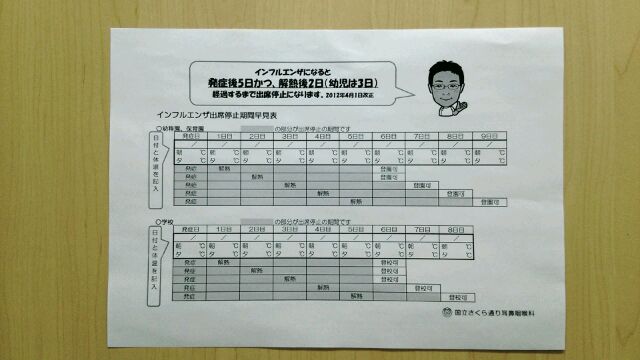 インフルエンザになると
発症後5日かつ、解熱後2日(幼児は3日)
経過するまで出席停止になります。2012年4月1日改正
インフルエンザ出席停止期間早見表
○幼稚園、保育園 の部分が出席停止の期間です
日付と体温を記入
発症日 1日目 2日目 3日目 4日目 5日目 6日目 7日目 8日目 9日目
/ / / / / / / / / /
朝 ℃ 朝 ℃ 朝 ℃ 朝 ℃ 朝 ℃ 朝 ℃ 朝 ℃ 朝 ℃ 朝 ℃ 朝 ℃
夕 ℃ 夕 ℃ 夕 ℃ 夕 ℃ 夕 ℃ 夕 ℃ 夕 ℃ 夕 ℃ 夕 ℃ 夕 ℃
発症 解熱 登園可
発症 解熱 登園可
発症 解熱 登園可
発症 解熱 登園可
発症 解熱 登園可
○学校 の部分が出席停止の期間です
日付と体温を記入
発症日 1日目 2日目 3日目 4日目 5日目 6日目 7日目 8日目
/ / / / / / / / /
朝 ℃ 朝 ℃ 朝 ℃ 朝 ℃ 朝 ℃ 朝 ℃ 朝 ℃ 朝 ℃ 朝 ℃
夕 ℃ 夕 ℃ 夕 ℃ 夕 ℃ 夕 ℃ 夕 ℃ 夕 ℃ 夕 ℃ 夕 ℃
発症 解熱 登校可
発症 解熱 登校可
発症 解熱 登校可
発症 解熱 登校可
発症 解熱 登校可
国立さくら通り耳鼻咽喉科